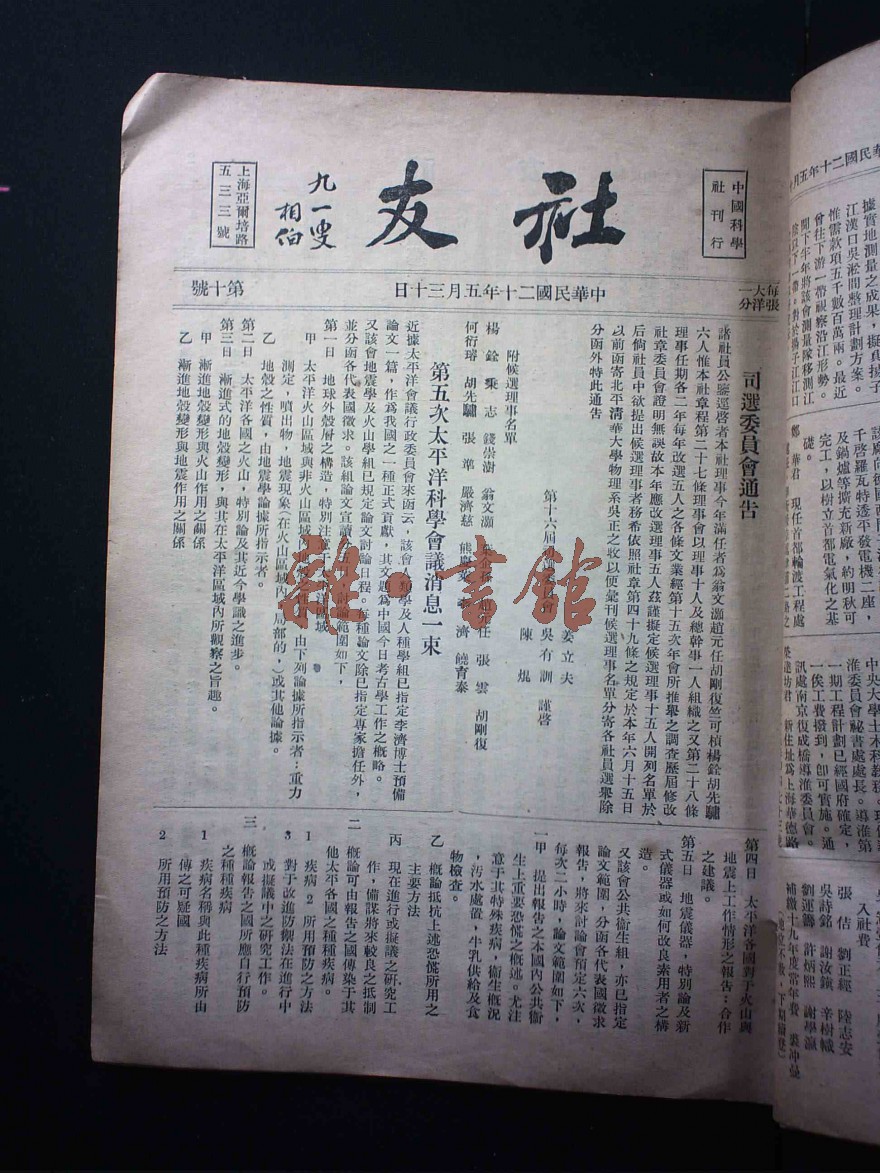 中國科學
社刊行
社友
九一叟
相伯
上海亞爾培路
五三三號
每張
大洋
一分
中華民國二十年五月三十日
第十號
司選委員會通告
諸社員公鑒逕啓者本社理事今年滿任者爲翁文灝趙元任胡剛復竺可楨楊銓胡先驌
六人惟本社章程第二十七條理事會以理事十人及總幹事一人組織之又第二十八條
理事任期各二年每年改選五人之各條文業經第十五次年會所推舉之調查歷屆修改
社章委員會證明無誤故本年應改選理事五人茲謹擬定候選理事十五人開列名單於
后倘社員中欲提出候選理事者務希依照社章第四十九條之規定於本年六月十五日
以前函寄北平清華大學物理系吳正之收以便彙刊候選理事名單分寄各社員選舉除
分函外特此通告
第十六屆
姜立夫
吳有訓 謹啓
陳 焜
附候選理事名單
楊 銓 秉 志 錢崇澍 翁文灝 任 張 雲 胡剛復
何衍璿 胡先驌 張 準 嚴濟慈 熊 濟 饒育泰
第五次太平洋科學會議消息一束
近據太平洋會議行政委員會來函云，該會 學及人種學組已指定李濟博士預備
論文一篇，作爲我國之一種正式貢獻，其文題爲中國今日考古學工作之概略。
又該會地震學及火山學組已規定論文討論日程。每種論文除已指定專家擔任外，
並分函各代表國徵求。該組論文宣讀 討論範圍如下，
第一日 地球外殼層之構造，特別注意于 區域
甲 太平洋火山區域與非火山區域 由下列論據所指示者：重力
測定，噴出物，地震現象（在火山區域內 局部的，）或其他論據。
乙 地殼之性質，由地震學論據所指示者。
第二日 太平洋各國之火山，特別論及其近今學識之進步。
第三日 漸進式的地殼變形，與其在太平洋區域內所觀察之旨趣。
甲 漸進地殼變形與火山作用之關係
乙 漸進地殼變形與地震作用之關係
第四日 太平洋各國對于火山與
地震上工作情形之報告：合作
之建議。
第五日 地震儀器，特別論及新
式儀器或如何改良素用者之構
造。
又該會公共衛生組，亦已指定
論文範圍，分函各代表國徵求
報告，將來討論會預定六次，
每次二小時，論文範圍如下，
一甲 提出報告之本國內公共衛
生上重要恐慌之概述。尤注
意于其特殊疾病，衛生概況
，污水處置，牛乳供給及食
物檢查。
乙 概論抵抗上述恐慌所用之
主要方法
丙 現在進行或擬議之研究工
作，備謀將來較良之抵制
二 概論可由報告之國傳染于其
他太平各國之種種疾病。
1 疾病 2 所用預防之方法
3 對于改進防觀法在進行中
或擬議中之研究工作。
三 概論報告之國所應自行預防
之種種疾病
1 疾病名稱與此種疾病所由
傳之可疑國
2 所用預防之方法
雜·書館
據實地測量之成果，擬具揚子
江漢口吳淞間整理計劃方案。
惟需款項五千數百萬兩。最近
會往下游一帶視察沿江形勢。
間下半年將該會測量隊移測江
千啓羅瓦特透平發電機二座，
及鍋爐等擴充新廠，約明秋可
完工，以樹立首都電氣化之基
礎。
鄭 華君 現任首都輪渡工程處
淮委員會祕書處處長。導淮第
一期工程計劃已經國府確定，
一俟工費撥到，卽可實施。通
訊處南京復成橋導淮委員會。
新住址爲上海華德路
入社費
張 佶 劉正經 陸志安
吳詩銘 謝汝鎮 辛樹幟
劉運籌 許炳熙 謝學瀛
補繳十九年度常年費 裴沖曼